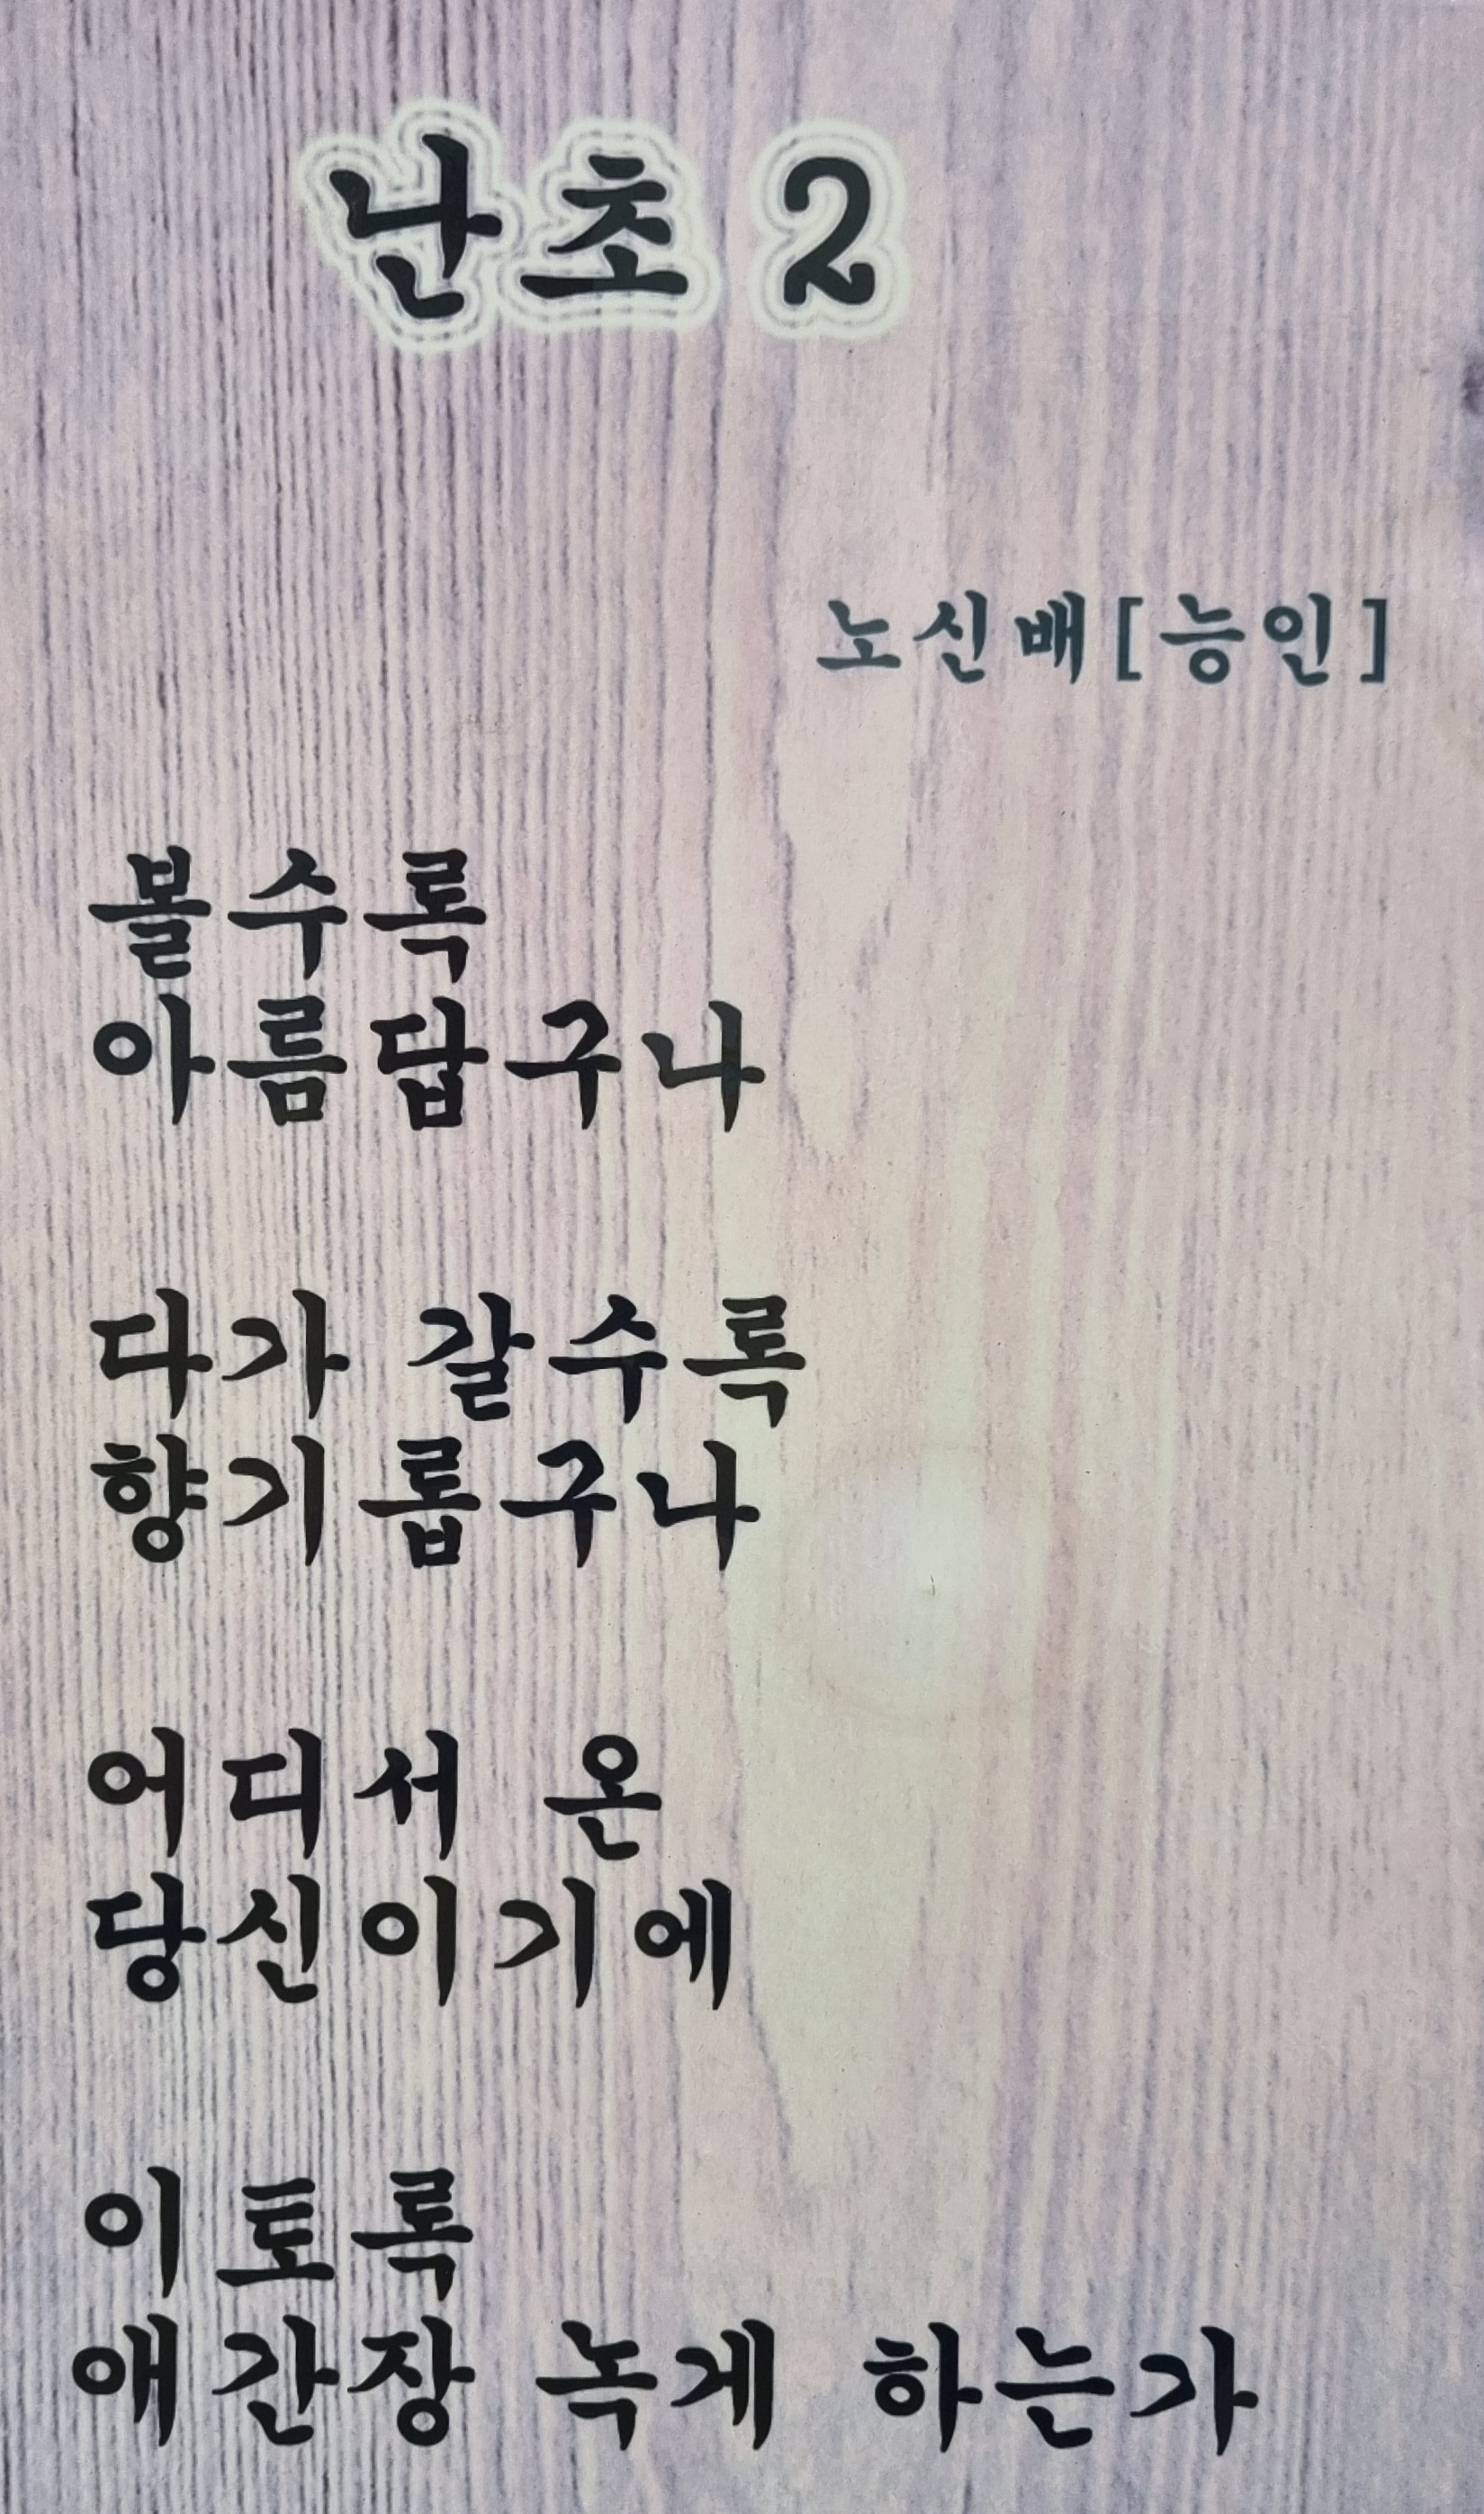 난초 2
노신배[능인]
볼수록
아름답구나
다가 갈수록
향기롭구나
어디서 온
당신이기에
이토록
애간장 녹게 하는가